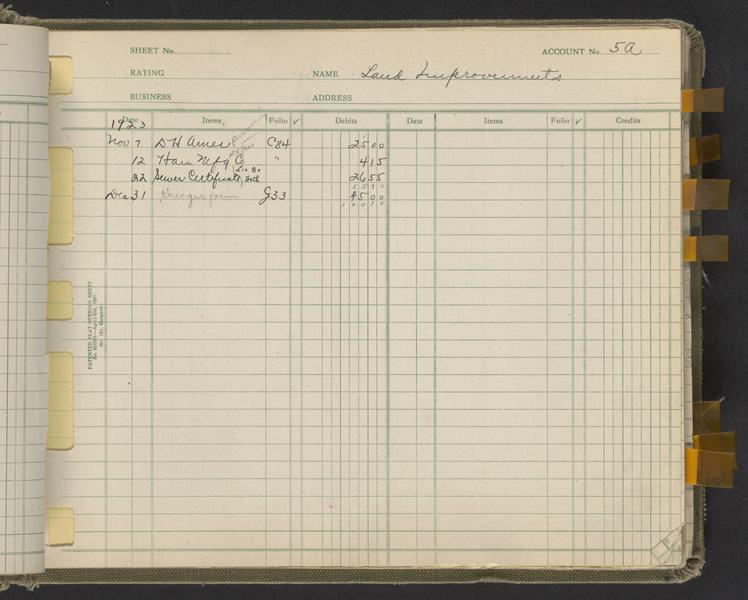 SHEET No. ACCOUNT No. 5A
RATING NAME Land Improvements
BUSINESS ADDRESS
Date Items Folio ✓ Debits Date Items Folio ✓ Credits
1923
Nov 7 D H Ames C84 25 00
12 Ham Mfg Co " 4 15
22 Sewer Certificate 26 55
55 70
Dec 31 Krueger farm J33 45 00
100 70
PATENTED FLAT OPENING SHEET